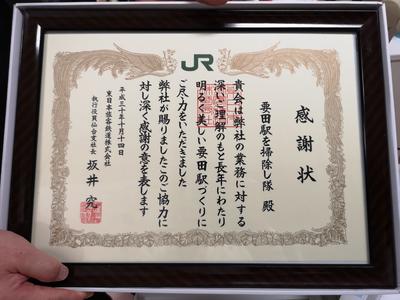 JR
感謝状
要田駅を掃除し隊 殿
貴会は弊社の業務に対する
深いご理解のもと長年にわたり
明るく美しい要田駅づくりに
ご尽力をいただきました
弊社が賜りましたこのご協力に
対し深く感謝の意を表します
平成三十年十月十四日
東日本旅客鉄道株式会社
執行役員仙台支社長 坂井 究